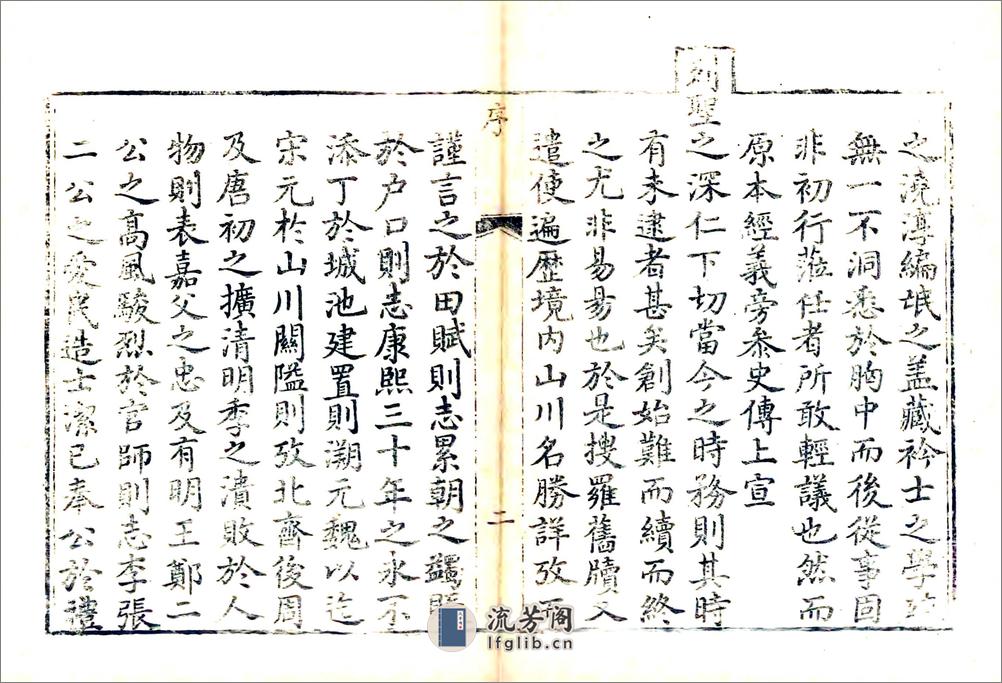 之澆淳編氓之盖藏衿士之學
無一不洞悉於胸中而後從事固
非初行蒞任者所敢輕議也然而
原本經義旁叅史傳上宣
列聖之深仁下切當今之時務則其時
有未逮者甚矣創始難而續而終
之尤非易易也於是搜羅舊牘又
遣使遍歷境内山川名勝詳攷而
序
二
謹言之於田賦則志累朝之蠲賑
於户口則志康熙三十年之永不
添丁於城池建置則溯元魏以迄
宋元於山川關隘則攷北齊後周
及唐初之擴清明季之潰敗於人
物則表嘉父之忠及有明王鄭二
公之高風駿烈於官師則志李張
二公之愛民造士潔已奉公於禮
流芳阁
lfglib.cn